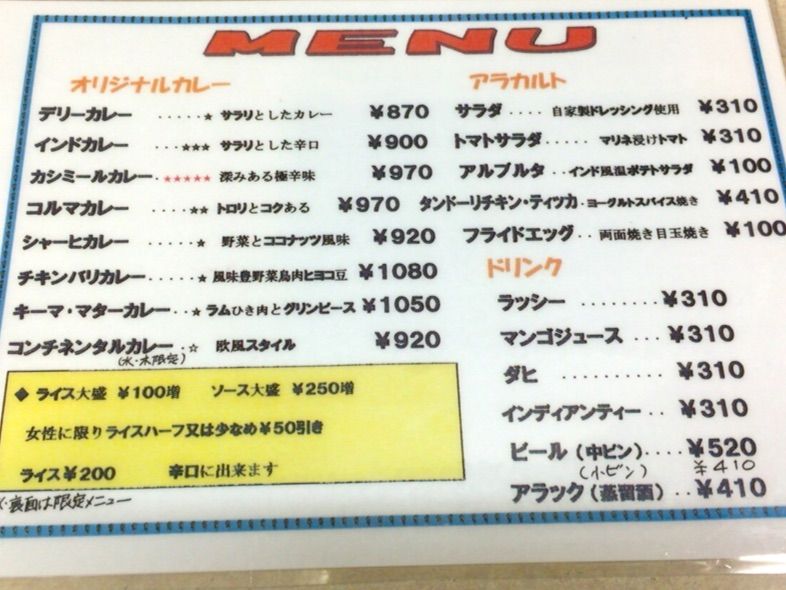 MENU
オリジナルカレー
デリーカレー ·····★ サラリとしたカレー ¥870
インドカレー ···★★★ サラリとした辛口 ¥900
カシミールカレー·★★★★★ 深みある極辛味 ¥970
コルマカレー ····★★ トロリとコクある ¥970
シャーヒカレー ····★ 野菜とココナッツ風味 ¥920
チキンバリカレー····★ 風味豊野菜鳥肉ヒヨコ豆 ¥1080
キーマ・マターカレー··★ ラムひき肉とグリンピース ¥1050
コンチネンタルカレー·☆ 欧風スタイル ¥920
(水・木限定)
◆ ライス大盛 ¥100増 ソース大盛 ¥250増
女性に限りライスハーフ又は少なめ¥50引き
ライス¥200 辛口に出来ます
※裏面は限定メニュー
アラカルト
サラダ ···· 自家製ドレッシング使用 ¥310
トマトサラダ···· マリネ浸けトマト ¥310
アルブルタ ··インド風温ポテトサラダ ¥100
タンドーリチキン・ティツカ·ヨーグルトスパイス焼き ¥410
フライドエッグ·· 両面焼き目玉焼き ¥100
ドリンク
ラッシー ········¥310
マンゴジュース ···¥310
ダヒ ·········· ¥310
インディアンティー ··¥310
ビール (中ビン)····¥520
(小ビン) ¥410
アラック (蒸留酒) ··¥410